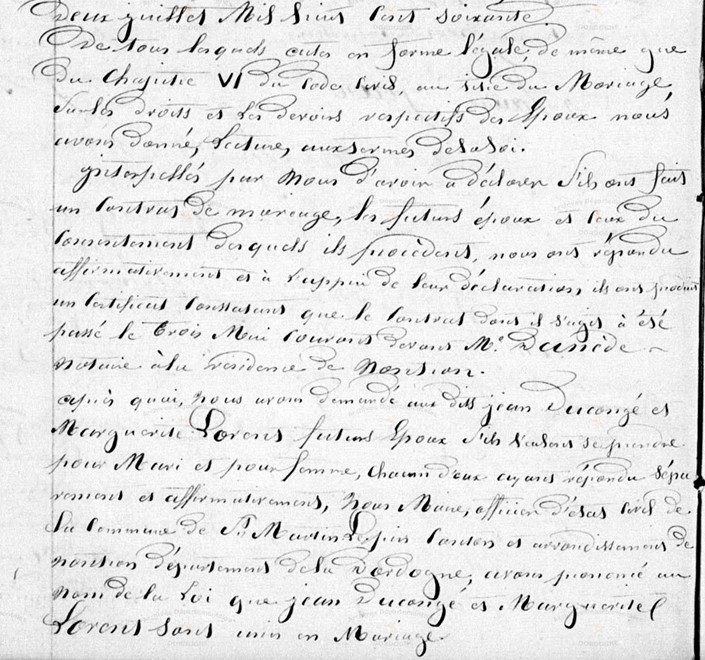 Deux juillet Mil huit cent soixante.
De tous lesquels actes en forme légale, de même que
du Chapitre VI du Code Civil, au titre du Mariage,
sur les droits et les devoirs respectifs des Epoux nous
avons donné, Lecture, aux termes de la loi.
interpellés par Nous d'avoir à déclarer S'ils ont fait
un Contrat de mariage, les futurs époux et ceux du
Consentement desquels ils procèdent, nous ont répondu
affirmativement et à l'appui de leur déclaration ils ont produit
un Certificat Constatant que le Contrat dont il s'agit à été
passé le trois Mai Courant devant Me
notaire à la résidence de Nontron.
après quoi, nous avons demandé aux dits jean Ducongé et
Marguerite Lorent futurs Epoux S'ils veulent se prendre
pour Mari et pour femme, chacun d'eux ayant répondu Sépa
rement et affirmativement, Nous Maire, officier d'état Civil de
la Commune de St Martin Lepin Canton et arrondissement de
nontron département de la Dordogne, avons prononcé au
nom de la Loi que jean Ducongé et Marguerite
Lorent sont unis en Mariage